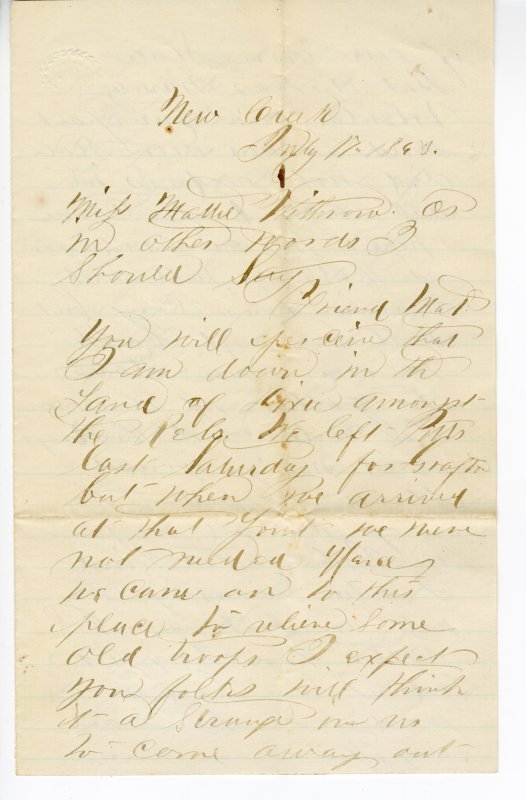 New Creek
July 17. 186
Miss Mattie Withrow. Or
in other words I
Should Say
Friend Mat.
You will perceive that
I am down in the
Land of Dixie amongst
the Rebs. We left Pitts
last Saturday for Grafton
but when we arrived
at that Point we were
not needed
we came on to this
place to relieve Some
Old troops I expect
You folks will think
it a on us
to come away out